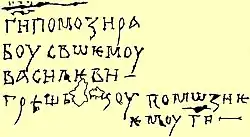 ГИПОМОЗИРА
БОУ СВѠЕМОУ
ВАСИЛЕВИ –
ГРѢШЬ ОУ ПОМѠЗИ
ЕМОУ ГИ –